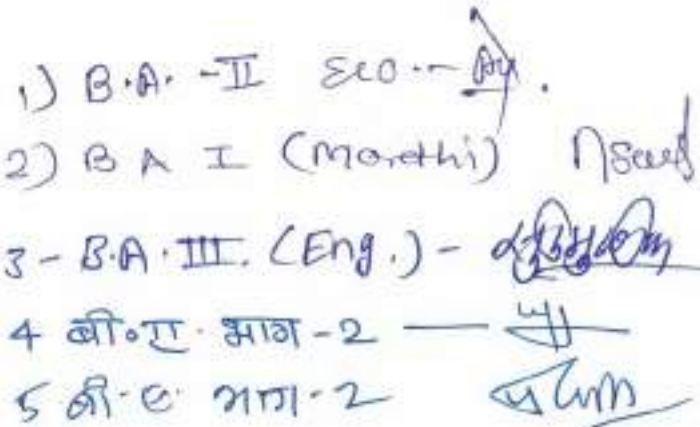 1) B.A. -II Eco.-
2) B A I (Marathi)
3 - B.A. III. (Eng.) -
4 बी०ए. भाग -2 —
5 बी.ए. भाग -2